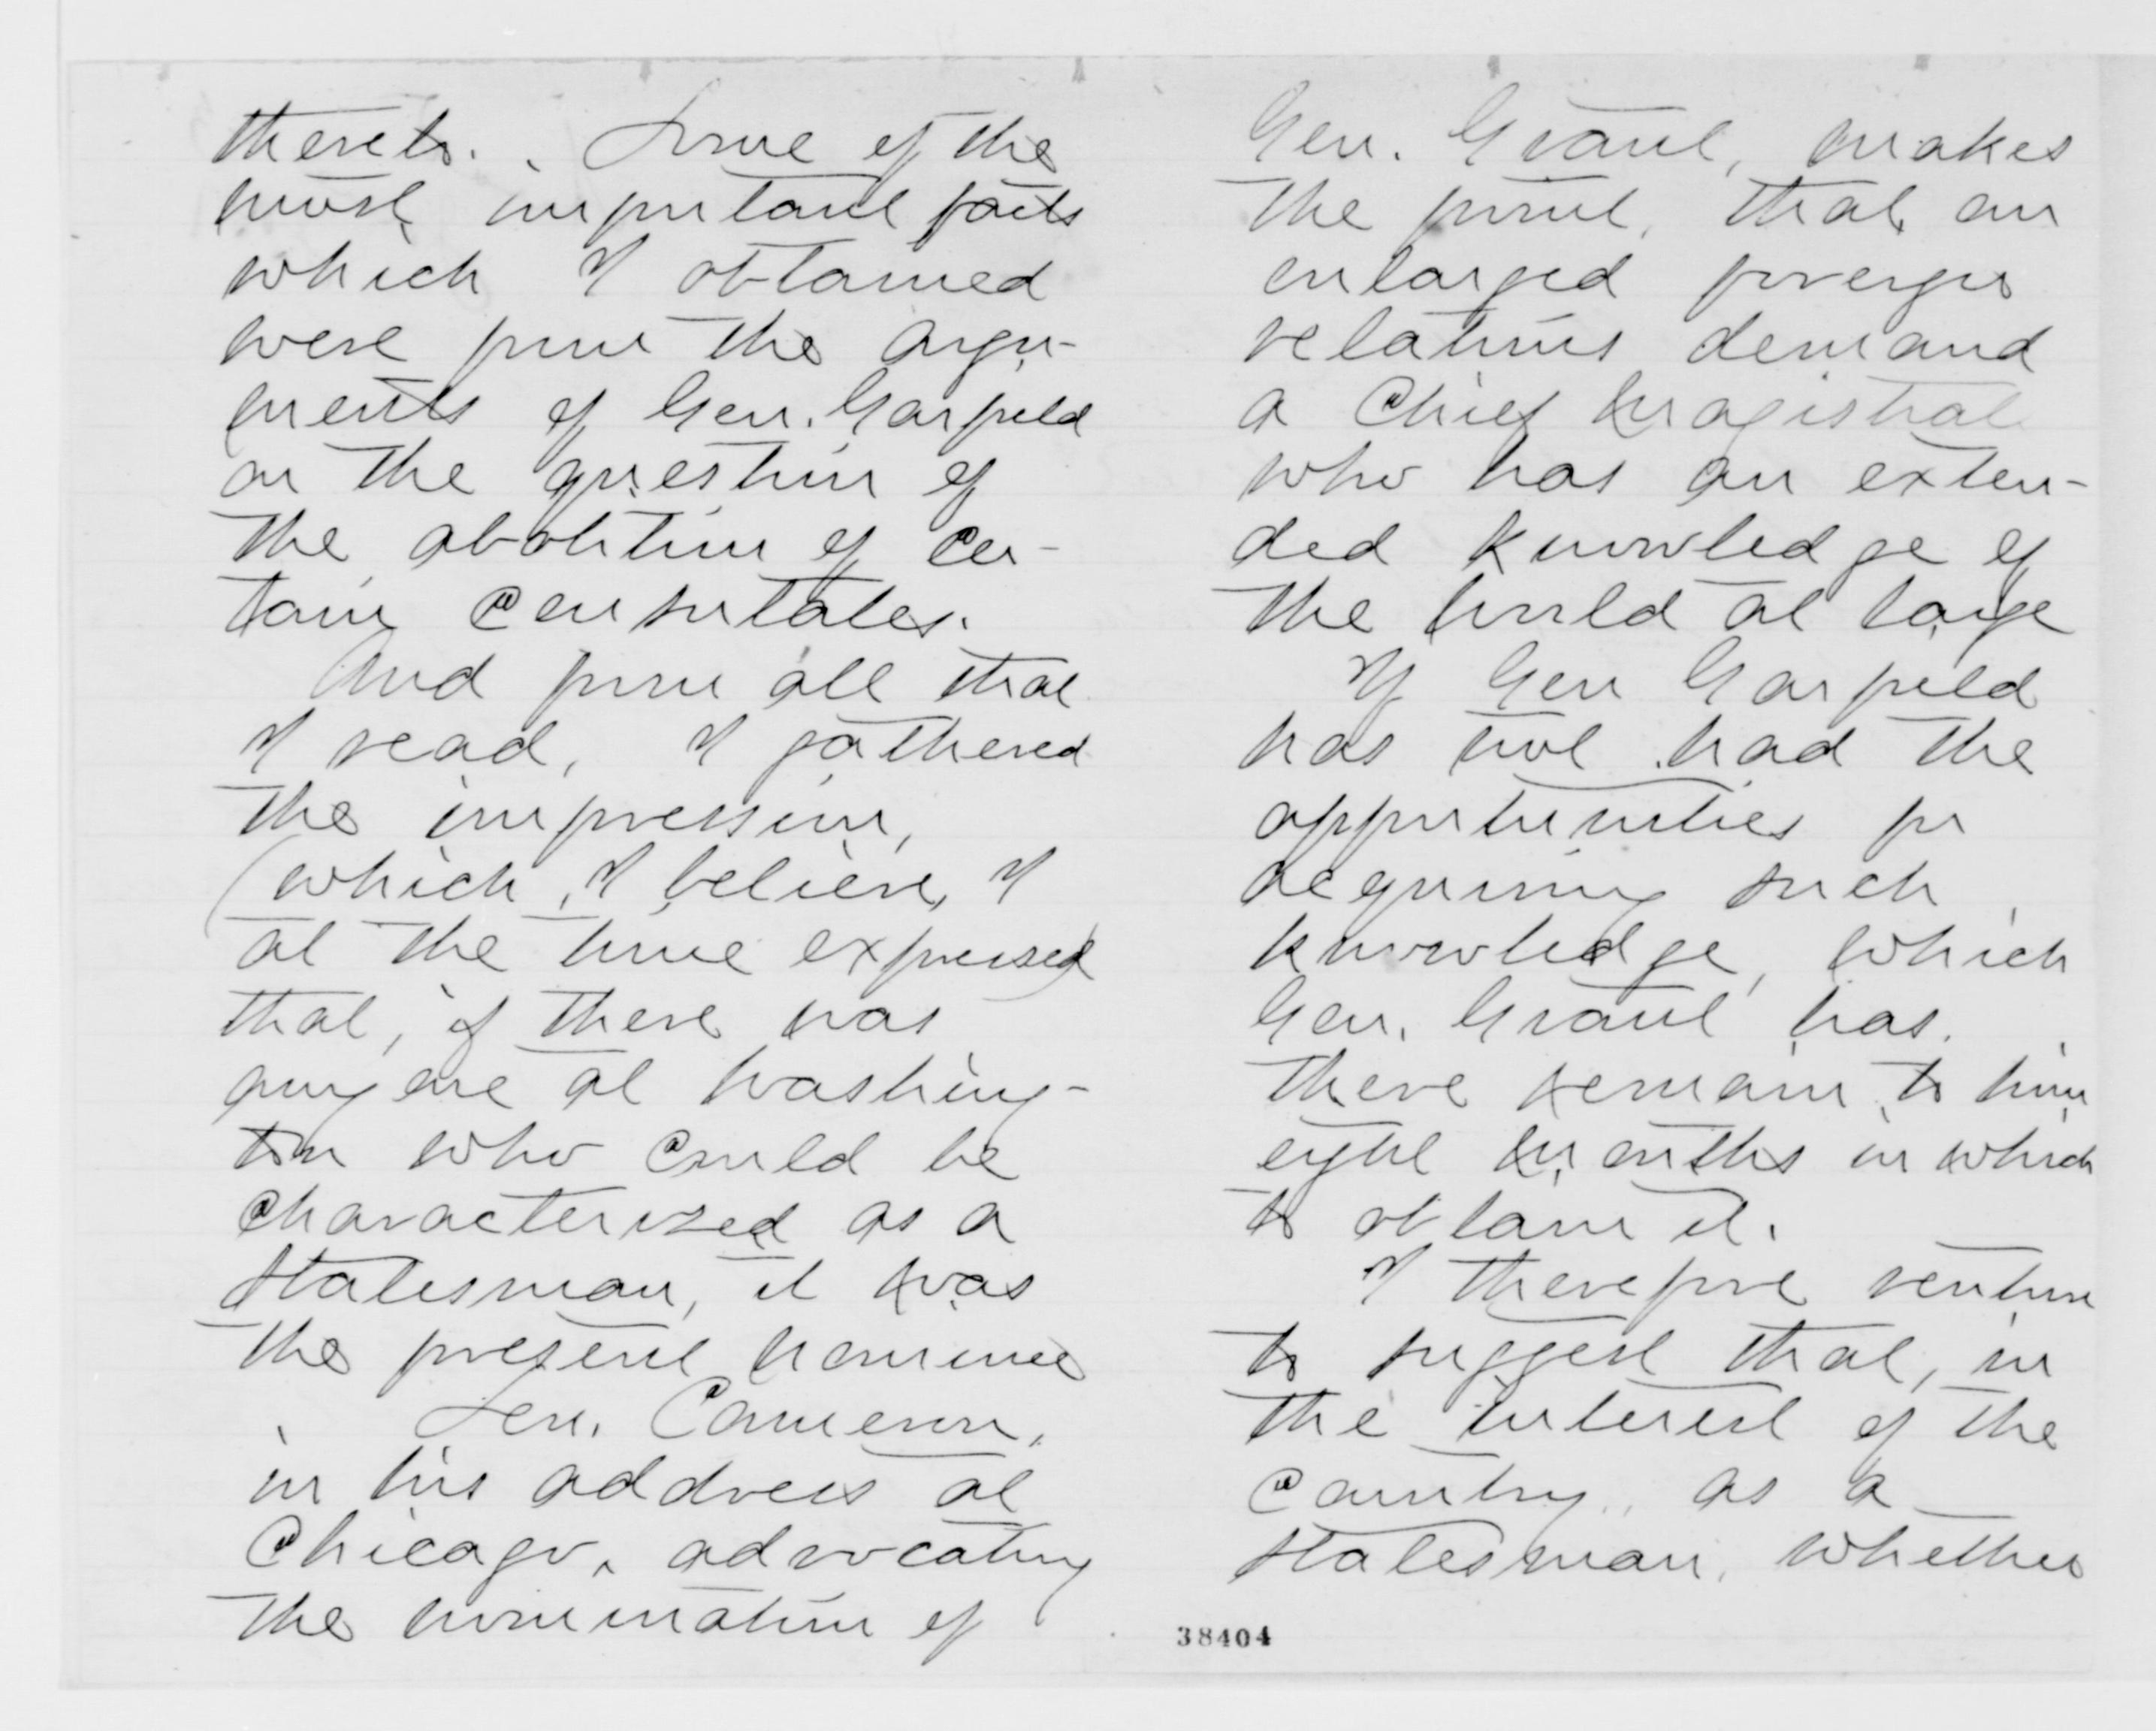 thereto. Some of the
most important facts
which I obtained
were from the argu-
ments of Gen. Garfield
on the question of
the abolition of cer-
tain Consulates.
And from all that
I read, I gathered
the impression,
(which, I believe, I
at the time expressed)
that, if there was
any one at Washing-
ton who could be
characterized as a
statesman, it was
the present nominee
Sen. Cameron,
in his address at
Chicago, advocating
the nomination of
Gen. Grant, makes
the point, that an
enlarged foreign
relations demand
a Chief Magistrate
who has an exten-
ded knowledge of
the world at large
If Gen Garfield
has not had the
opportunities for
acquiring such
knowledge, which
Gen. Grant has.
there remain to him
eight months in which
to obtain it.
I therefore venture
to suggest that, in
the interest of the
Country, as a
statesman, whether
38404